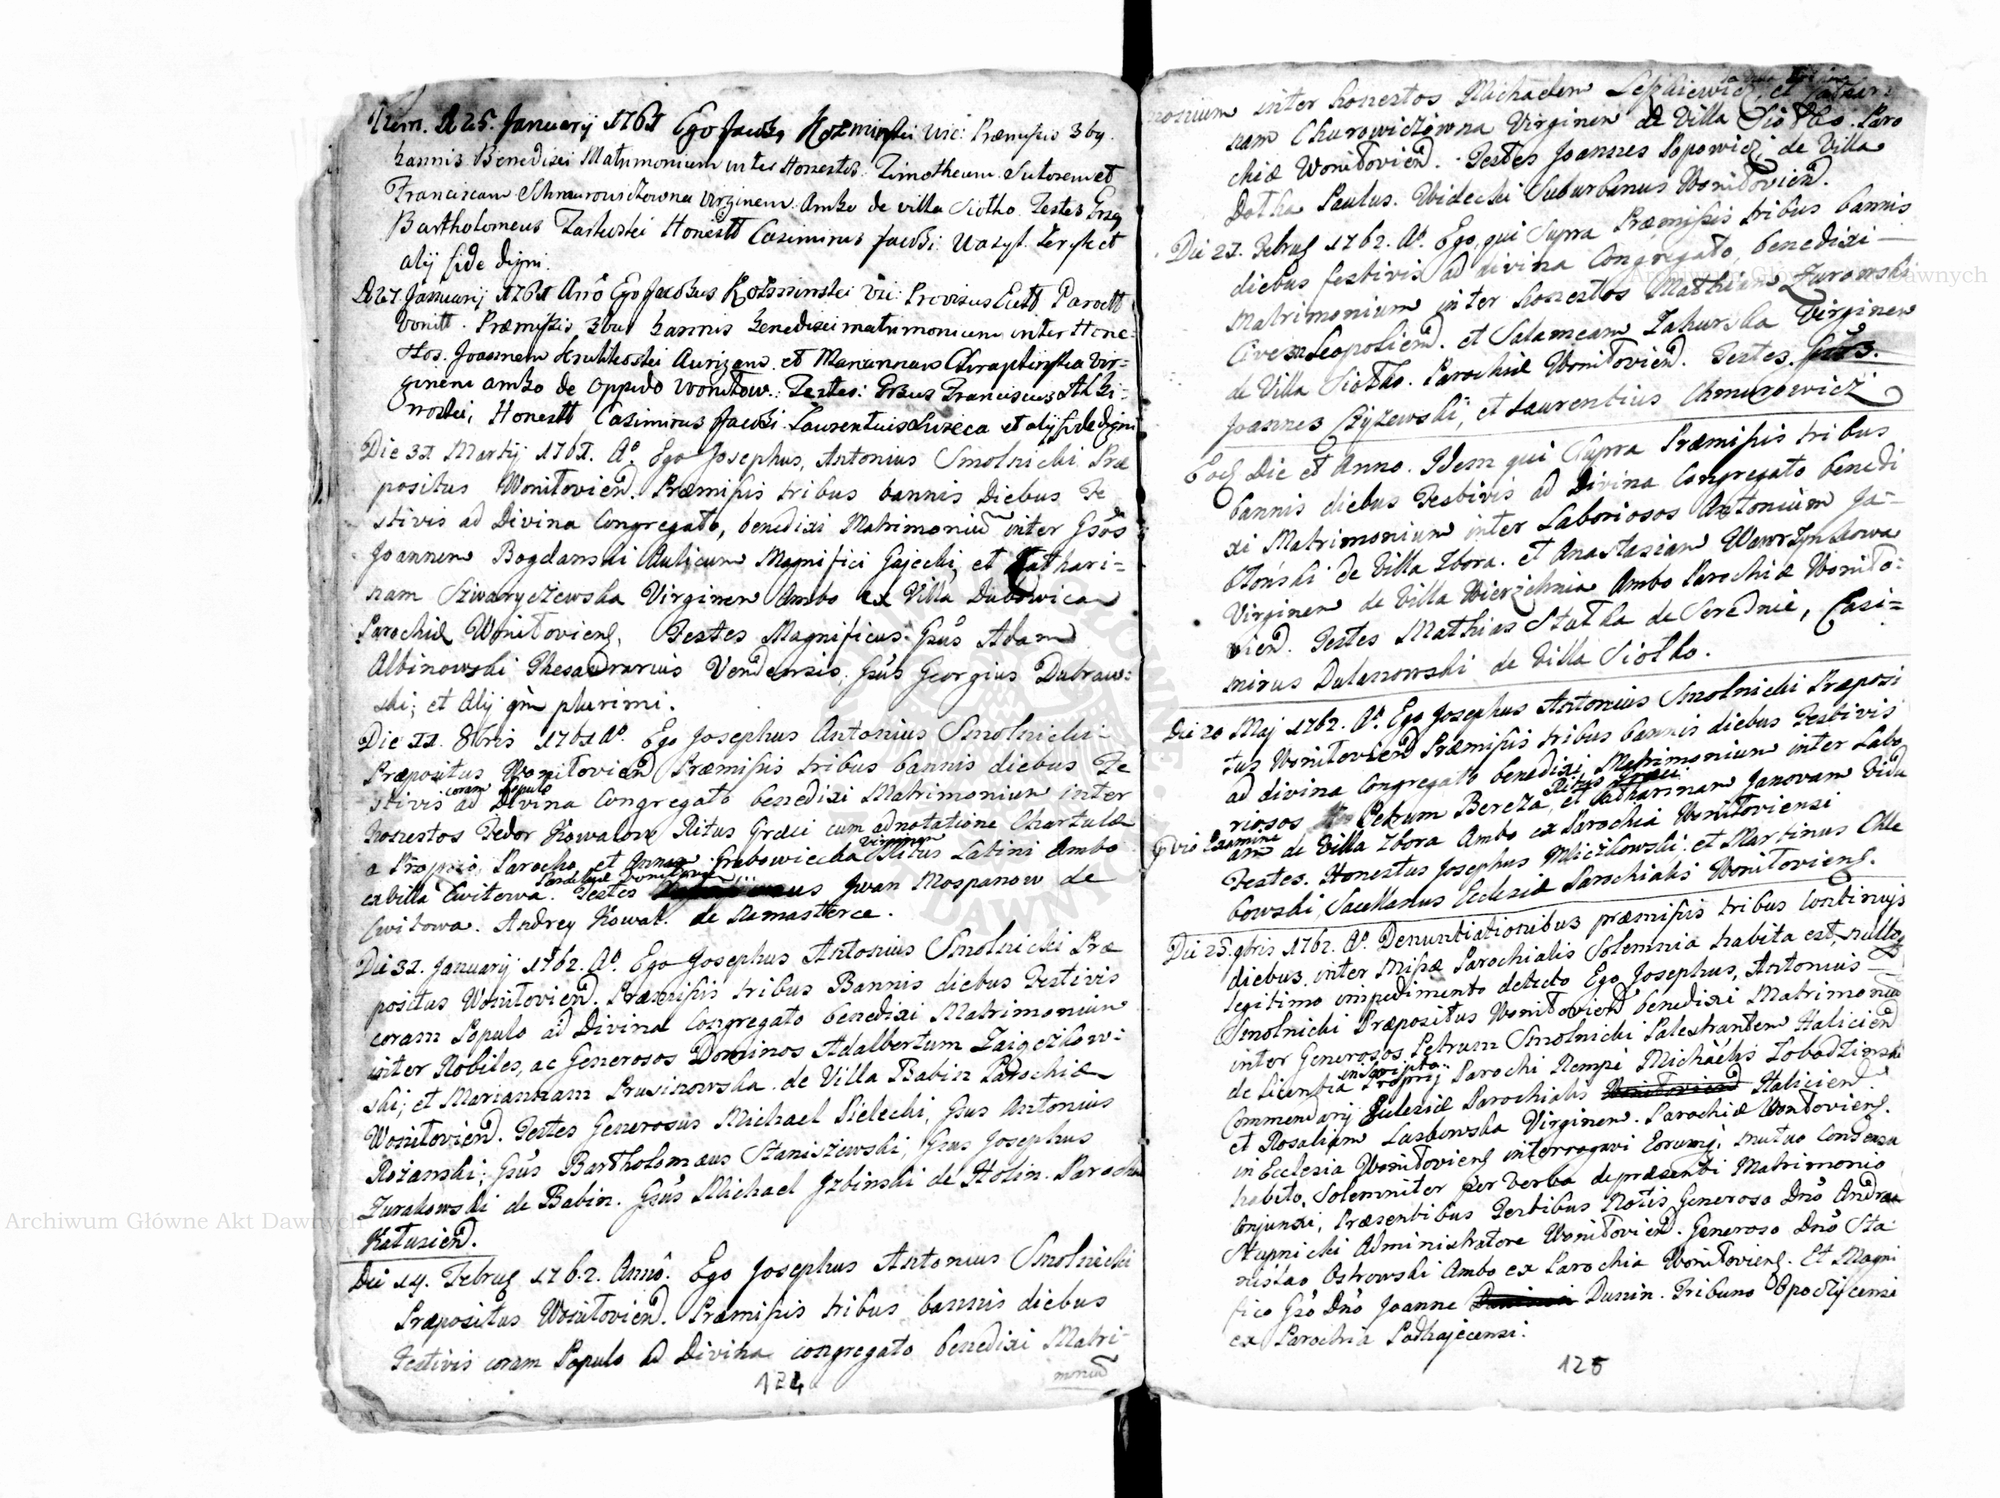 Item. D 25. Januarij 1761 Ego Jacobus Kozminski Vic: Præmissis 3bus
bannis Benedixi Matrimonium inter Honestos Timotheum Sutorem et
Franciscam Virginem Ambo de villa Siołko Testes
Bartholomeus Honestt Casimirus Jacobi et
alij fide digni.
D 27 Januarij 1761 Anō Ego Jacobus Kozminski Vic:
Præmissis 3bus bannis benedixi matrimonium inter Hone-
stos. Joannem Kulikoski Aurigam et Mariannam Vir-
ginem ambo de Oppido Wonitow. Testes: Franciscus
Honestt Casimirus Jacobi et alij fide digni
Die 31 Martij 1761. Aº. Ego Josephus, Antonius Smolnicki Præ
positus Wonitovien. Præmissis tribus bannis Diebus Fe
stivis ad Divina Congregato, benedixi Matrimoniū inter Gsōs
Joannem Bogdanski Aulicum Magnifici Gajecki, et Kathari=
nam Szwaryczewska Virginem Ambo ex Villa Dubowica
Parochiæ Wonitoviens, Testes Magnificus Gsūs Adam
Albinowski Thesaurarius Vendensis, Gsūs Georgius Dubraw=
ski; et Alij qm̄ plurimi.
Die 11. 8bris 1761 Aº. Ego Josephus Antonius Smolnicki
Præpositus Wonitovien Præmissis tribus bannis diebus Fe
stivis coram Populo ad Divina Congregato benedixi Matrimonium inter
honestos Fedor Kowalow Ritus Græci cum adnotatione Chartulæ
a Proprio Parocho, et Annam Grabowiecka Virginem Ritus Latini Ambo
ex villa Cwitowa. Testes Iwan Mospanow de
Cwitowa. Andrey Kowal. de
Die 31. Januarij 1762. Aº. Ego Josephus Antonius Smolnicki Præ
positus Wonitovien. Præmissis tribus Bannis diebus Festivis
coram Populo ad Divina Congregato benedixi Matrimonium
inter Nobiles, ac Generosos Dominos Adalbertum
ski; et Mariannam Prusinowska de Villa Babin Parochiæ
Wonitovien. Testes Generosus Michael Pielecki, Gsus Antonius
Rozanski; Gsūs Bartholomæus Staniszewski; Gsus Josephus
Zurakowski de Babin. Gsūs Michael Izbinski de Holin. Parochiæ
Katusien.
Die 14. Februs 1762. Annō. Ego Josephus Antonius Smolnicki
Præpositus Wonitovien. Præmissis tribus bannis diebus
Festivis coram Populo ad Divina congregato benedixi Matri-
moniū
124
monium inter honestos Michaelem et Cathari
nam Churowiczowna Virginem de Villa Siołko. Paro
chiæ Wonitovien. Testes Joannes Popowicz de Villa
Dołha Paulus. Widecki Suburbanus Wonitovien.
Die 21. Februs 1762. Aº. Ego, qui Supra Præmissis tribus bannis
diebus festivis ad divina Congregato, benedixi
Matrimonium inter honestos Mathiam Zurowski
Civem Leopolien. et Salomeam Virginem
de Villa Siołko. Parochiæ Wonitovien. Testes.
Joannes Czyzewski, et Laurentius Chmurowicz
Eodem Die et Anno. Idem qui Supra Præmissis tribus
bannis diebus Festivis ad Divina Congregato benedi
xi Matrimonium inter Laboriosos Antonium Ja-
błoński de Villa Zbora. et Anastasiam Wawrzynkowa
Virginem de Villa Wierzchnia Ambo Parochiæ Wonito=
vien. Testes Mathias Stołka de Serednie, Casi=
mirus Dulanowski de Villa Siołko.
Die 20 Maj 1762. Aº. Ego Josephus Antonius Smolnicki Præposi
tus Wonitovien Præmissis tribus bannis diebus Festivis
ad divina Congregato benedixi Matrimonium inter Labo
riosos Petrum Bereza Ritus Græci et Catharinam Janovam Vidu
am de Villa Zbora Ambo ex Parochia Wonitoviensi
prævio Examine
Testes. Honestus Josephus Mliczkowski. et Martinus Chle
bowski, Sacellanus Ecclesiæ Parochialis Wonitoviens.
Die 25. 9bris 1762. Aº. Denuntiationibus præmissis tribus Continuis
diebus, inter Missæ Parochialis Solemnia habita est, nullo
legitimo impedimento detecto Ego Josephus, Antonius
Smolnicki Præpositus Wonitovien benedixi Matrimoniū
inter Generosos Petrum Smolnicki Palestrantem Halicien
de Licentia in Scripto Proprij Parochi Nempe Michaelis Łobodzinski
Commendarij Eclesiæ Parochialis Halicien.
et Rosaliam Laskowska Virginem. Parochiæ Wonitoviens.
in Ecclesia Wonitoviens interrogavi Eorumq; mutuo Consensu
habito, Solemniter per verba de præsenti Matrimonio
Conjunxi, Præsentibus Testibus Notis Generoso Dnō Andrea
Stupnicki Administratore Wonitovien. Generoso Dnō Sta-
nislao Ostrowski Ambo ex Parochia Wonitoviens. Et Magni
fico Gsō Dnō Joanne Dunin. Tribuno Opoczycensi
ex Parochia Podhajecensi.
125
Archiwum Główne Akt Dawnych
Archiwum Główne Akt Dawnych